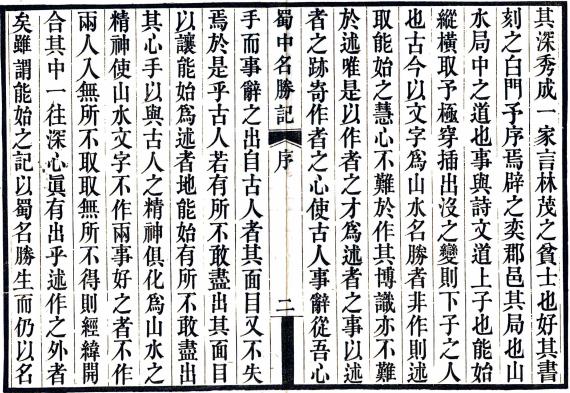 其深秀成一家言林茂之貧士也好其書
刻之白門予序焉辟之奕郡邑其局也山
水局中之道也事與詩文道上子也能始
縱橫取予極穿插出沒之變則下子之人
也古今以文字爲山水名勝者非作則述
取能始之慧心不難於作其博識亦不難
於述唯是以作者之才爲述者之事以述
者之跡寄作者之心使古人事辭從吾心
蜀中名勝記 序 二
手而事辭之出自古人者其面目又不失
焉於是乎古人若有所不敢盡出其面目
以讓能始爲述者地能始有所不敢盡出
其心手以與古人之精神俱化爲山水之
精神使山水文字不作兩事好之者不作
兩人入無所不取取無所不得則經緯開
合其中一往深心眞有出乎述作之外者
矣雖謂能始之記以蜀名勝生而仍以名